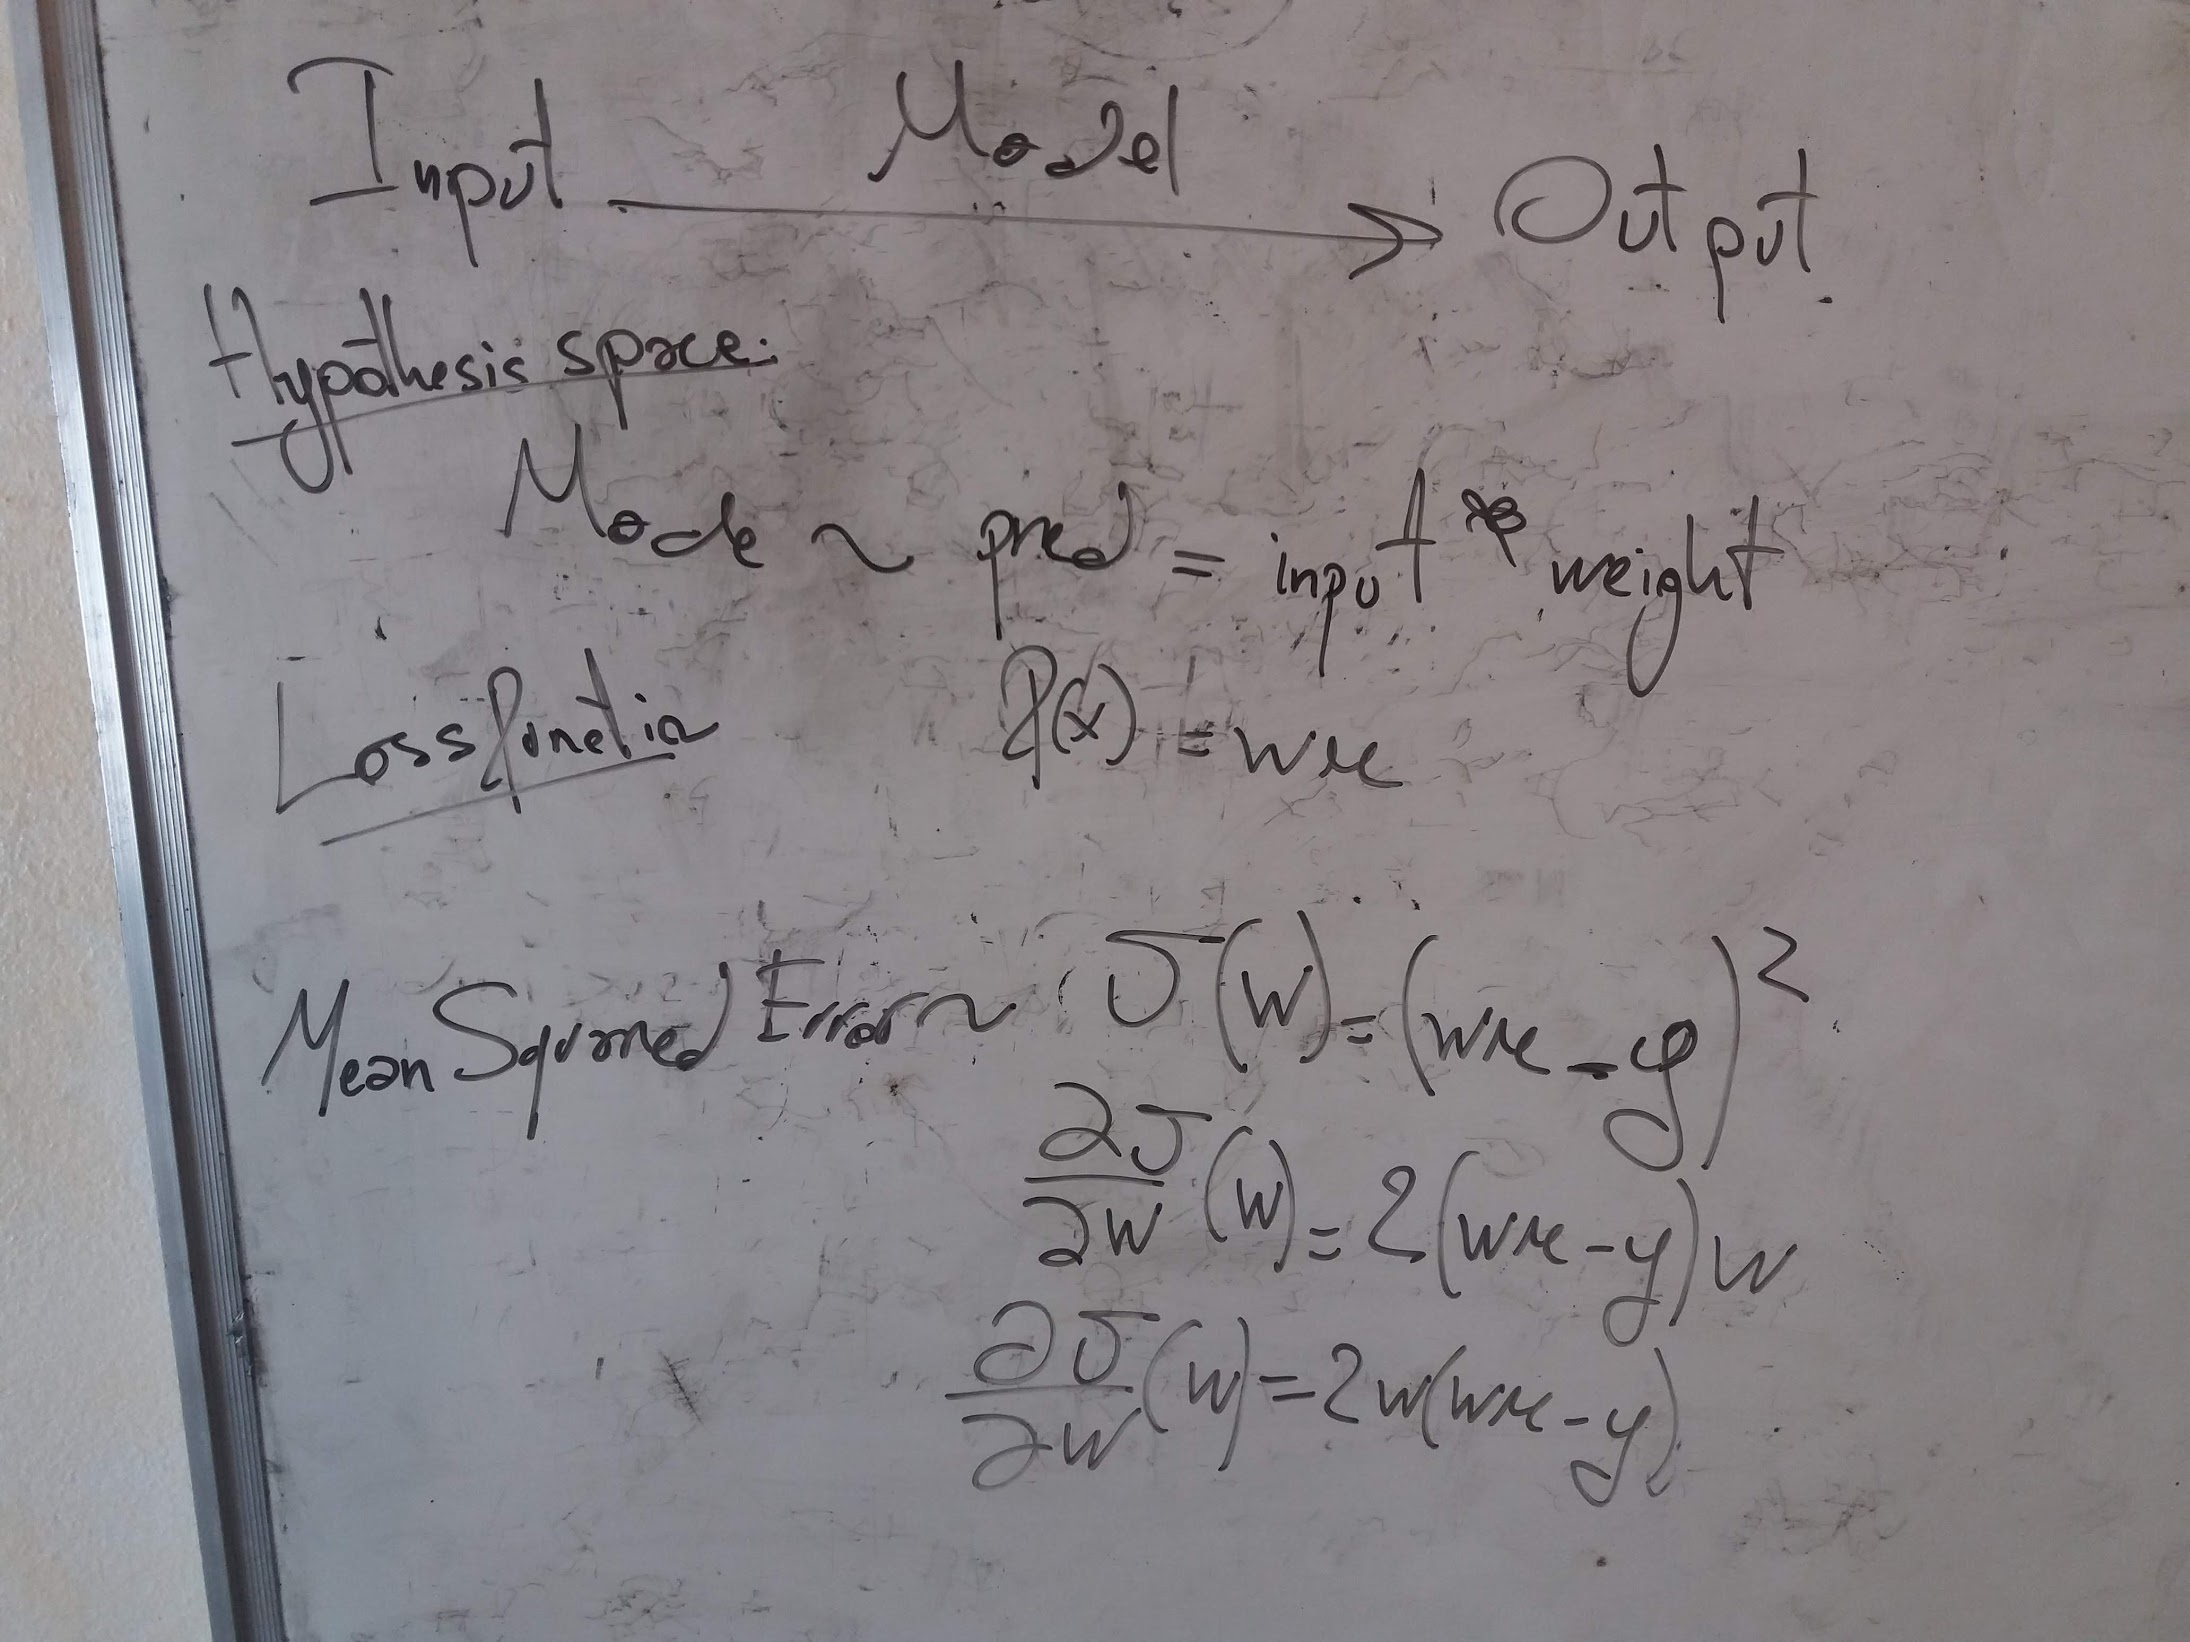 Input Model Output
Hypothesis space:
Mode ~ pred = input * weight
Loss function f(x) = wx
Mean Squared Error ~ J(w) = (wx - y)²
∂J/∂w (w) = 2(wx - y)w
∂J/∂w (w) = 2w(wx - y)